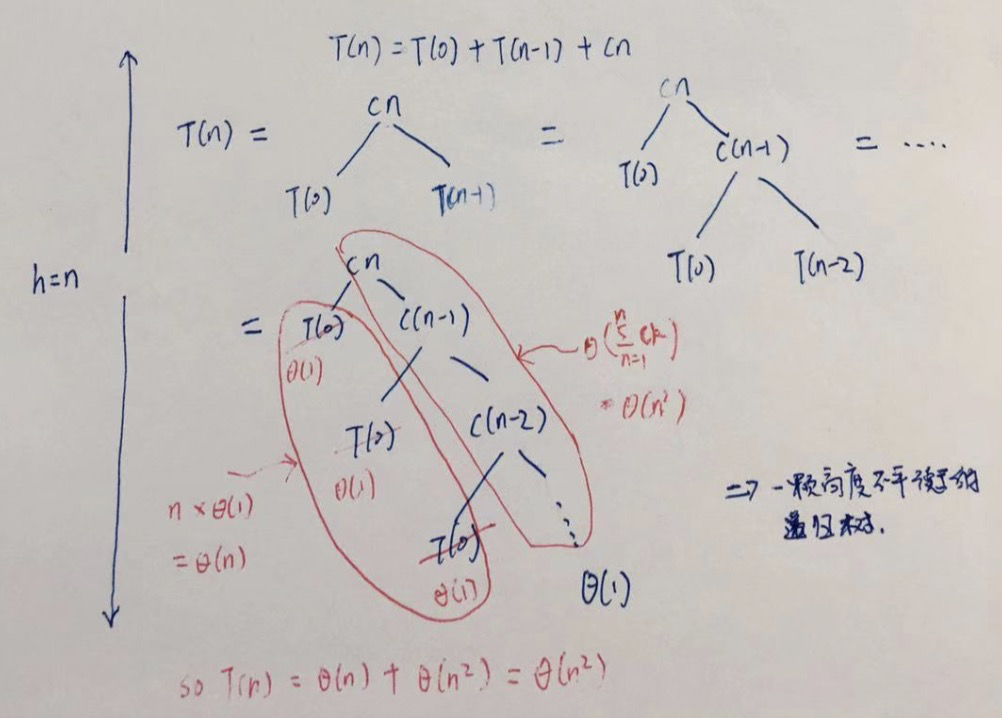 T(n) = T(0) + T(n-1) + cn
T(n) =
cn
T(0)
T(n-1)
=
cn
T(0)
c(n-1)
T(0)
T(n-2)
= ....
h=n
=
cn
T(0)
θ(1)
c(n-1)
T(0)
θ(1)
c(n-2)
T(0)
θ(1)
θ(1)
θ(∑ⁿₙ₌₁ ck)
= θ(n²)
n × θ(1)
= θ(n)
=> 一颗高度不平衡的
递归树.
so T(n) = θ(n) + θ(n²) = θ(n²)